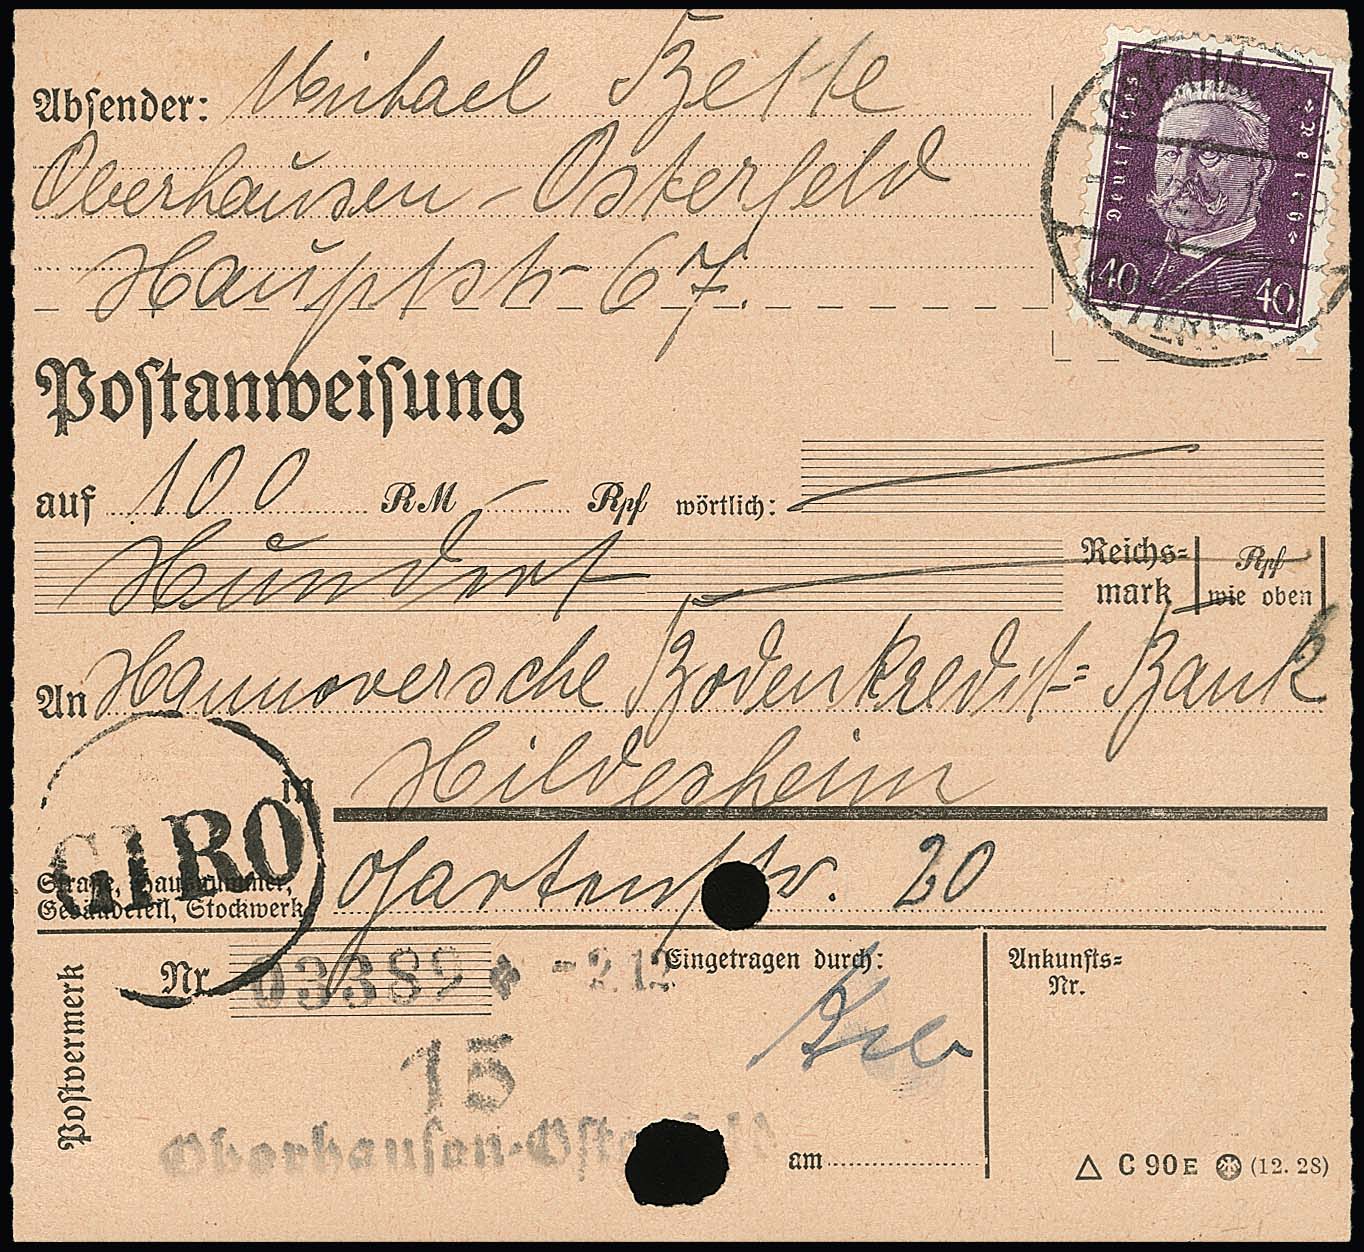 Absender: Michael Bette
Oberhausen - Osterfeld
Hauptstr 67.
Deutsches Reich
40 40
Postanweisung
auf 100 RM — Rpf wörtlich:
Hundert Reichs= Rpf
mark wie oben
An Hannoversche Bodenkredit= Bank
in Hildesheim
GIRO
Straße, Hausnummer,
Gebäudeteil, Stockwerk Gartenstr. 20
Postvermerk
Nr. 03389 * -2.12 Eingetragen durch: Ankunfts=
Nr.
15
Oberhausen-Osterfeld
am
△ C 90 E (12. 28)